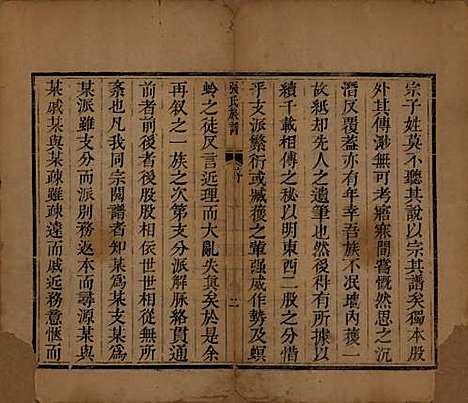 宗子姓莫不聽其說以宗其譜矣獨本股
外其傳渺無可考嚐寒間嘗慨然思之沉
潛反覆益亦有年幸吾族不泯壇內獲一
紙却先人之遺筆也然
續千載相傳之秘以明東西二股之分惜
乎支派繁衍或減獲之輩强威作勢及螟
張氏族譜
二
蛉之徒反言近理而大亂失眞矣於是余
再叙之一族之次第支分派解脈絡貫通
前者前後者後相依世世相彷彿有條不
紊也凡我同宗閱譜者知某爲某與某爲
某派雖支分而派別務返本而尋源某與
某戚某與某疎雖疎遠而戚近務意愜而